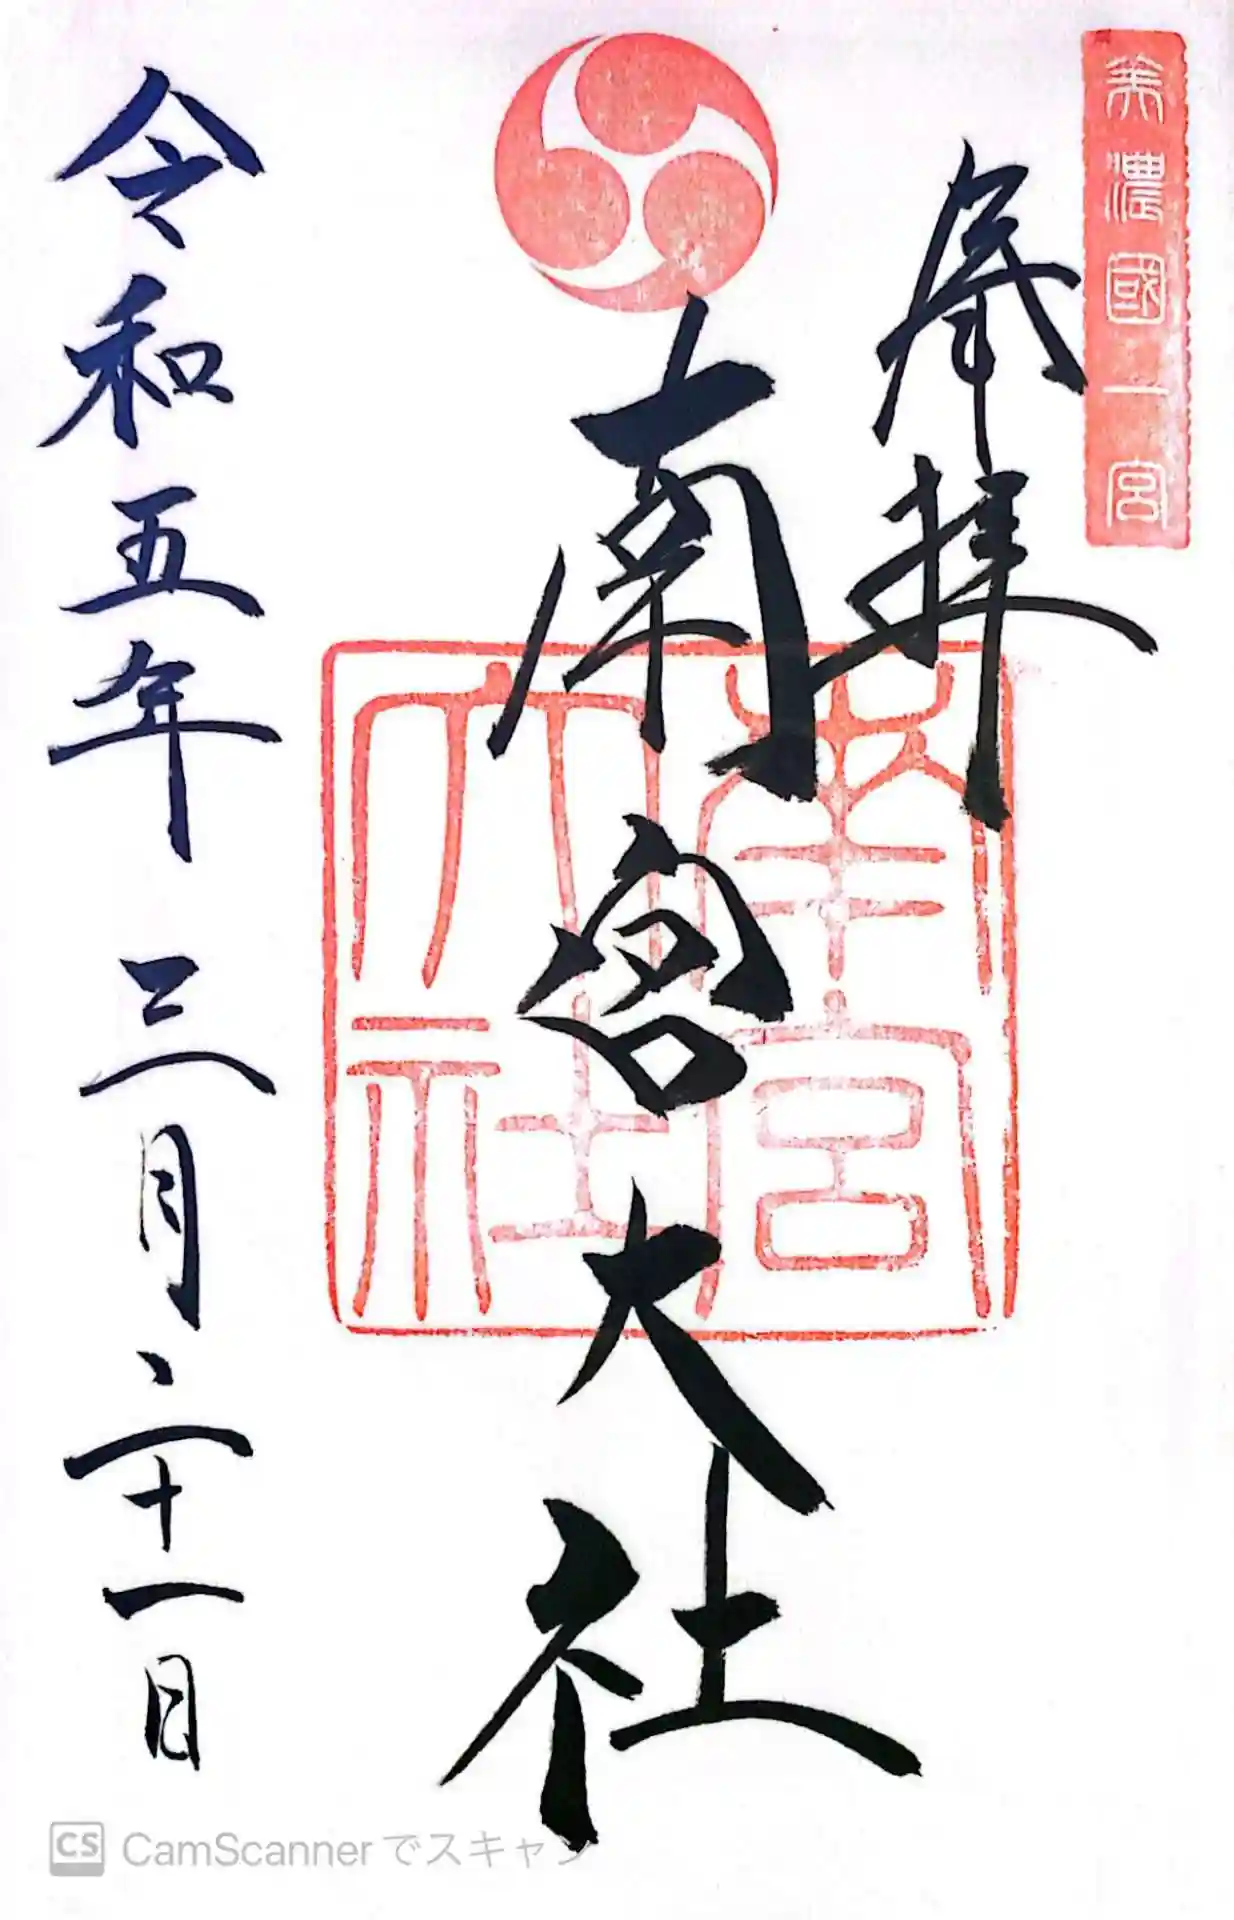 美濃國一宮
奉拝
南宮大社
南宮大社
令和五年三月二十一日
CS CamScannerでスキャン